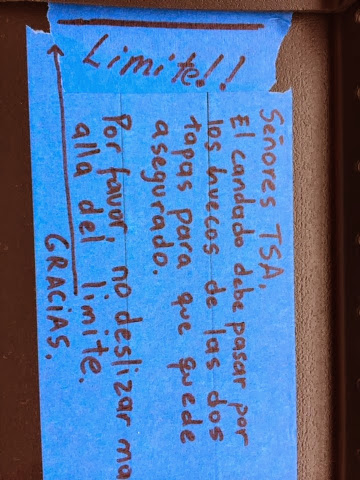 Limite!!
Señores TSA,
El candado debe pasar por
los huecos de las dos
tapas para que quede
asegurado.
Por favor no deslizar ma
alla del limite.
GRACIAS.